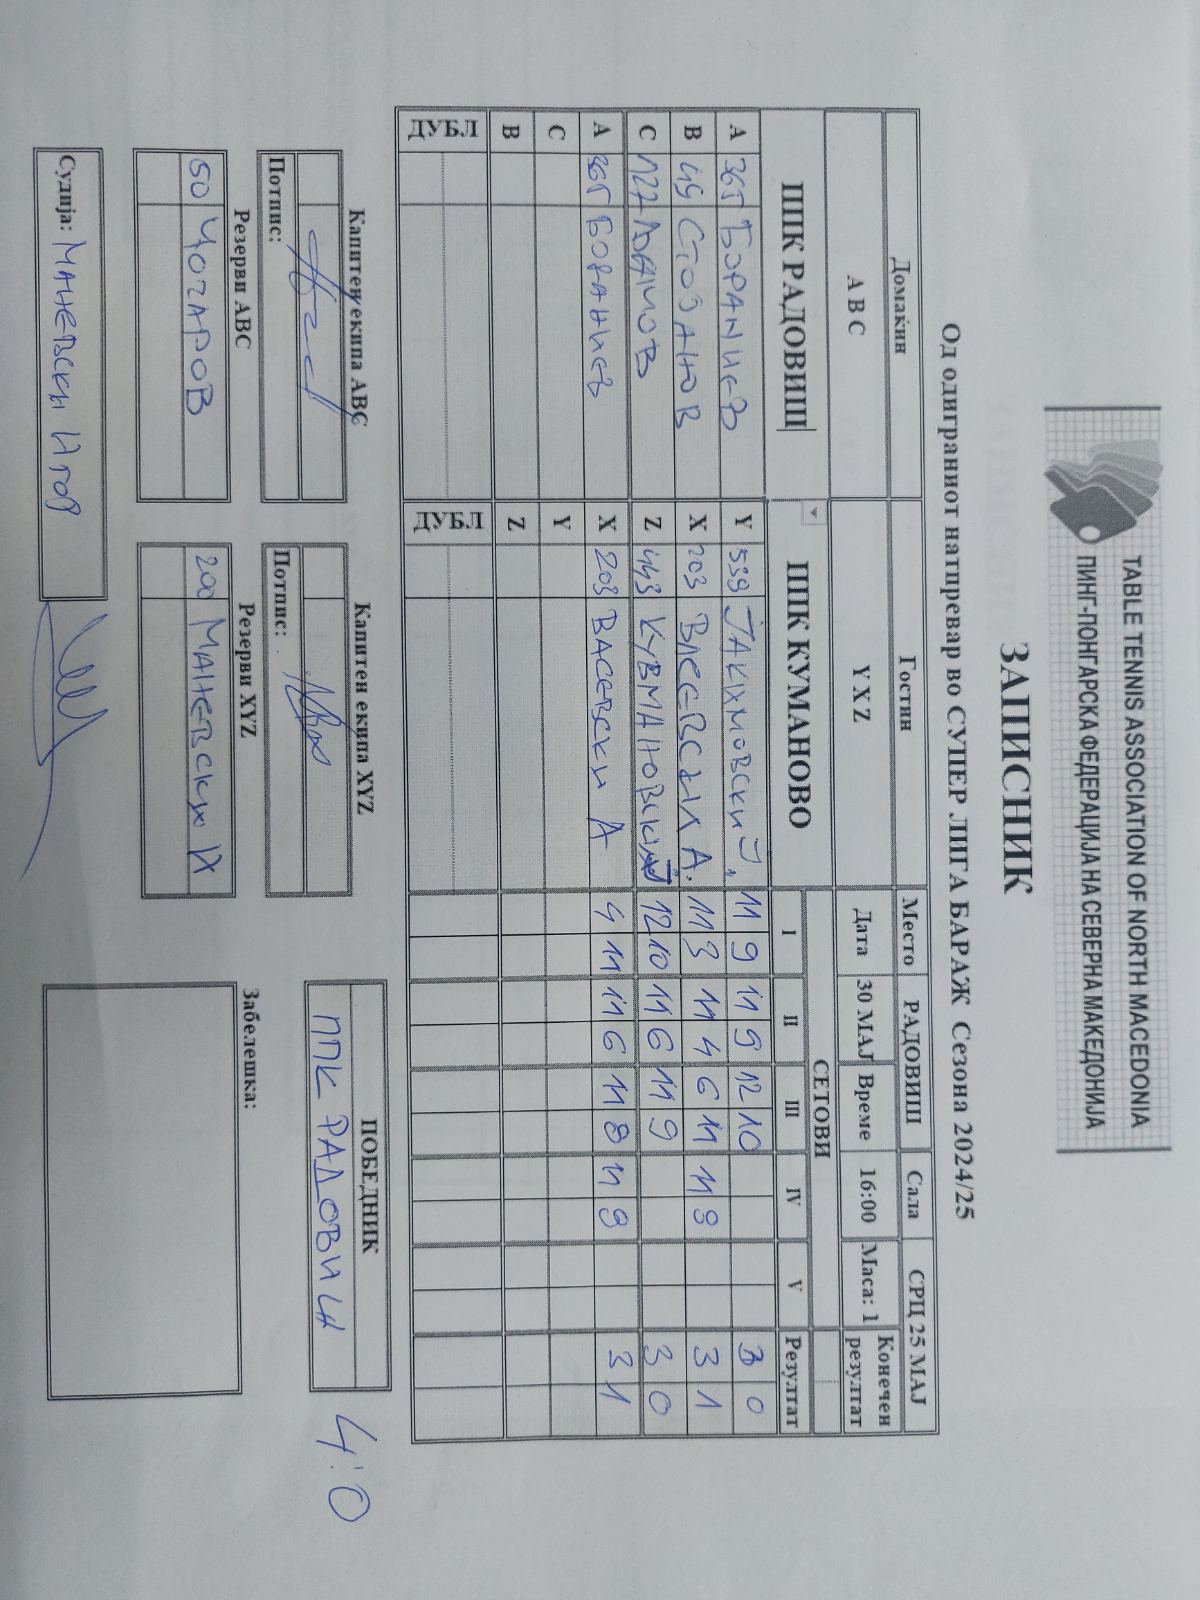 TABLE TENNIS ASSOCIATION OF NORTH MACEDONIA
ПИНГ-ПОНГАРСКА ФЕДЕРАЦИЈА НА СЕВЕРНА МАКЕДОНИЈА
ЗАПИСНИК
Од одиграниот натпревар во СУПЕР ЛИГА БАРАЖ Сезона 2024/25
Домаќин Гостин Место РАДОВИШ Сала СРЦ 25 МАЈ
A B C Y X Z Дата 30 МАЈ Време 16:00 Маса: 1 Конечен резултат
ППК РАДОВИШ ППК КУМАНОВО СЕТОВИ
I II III IV V Резултат
A Y 539 11 9 11 9 12 10 3 0
B X 203 11 3 11 4 6 11 11 9 3 1
C 127 Z 443 12 10 11 6 11 9 3 0
A X 203 ВАСЕВСКИ А 4 11 11 6 11 8 11 9 3 1
C Y
B Z
ДУБЛ ДУБЛ
Капитен екипа ABC Капитен екипа XYZ ПОБЕДНИК
Потпис: Потпис: ППК РАДОВИШ 4:0
Резерви ABC Резерви XYZ Забелешка:
50 ЧОЧАРОВ 200 МАНЕВСКИ И
Судија: МАНЕВСКИ ИГОР